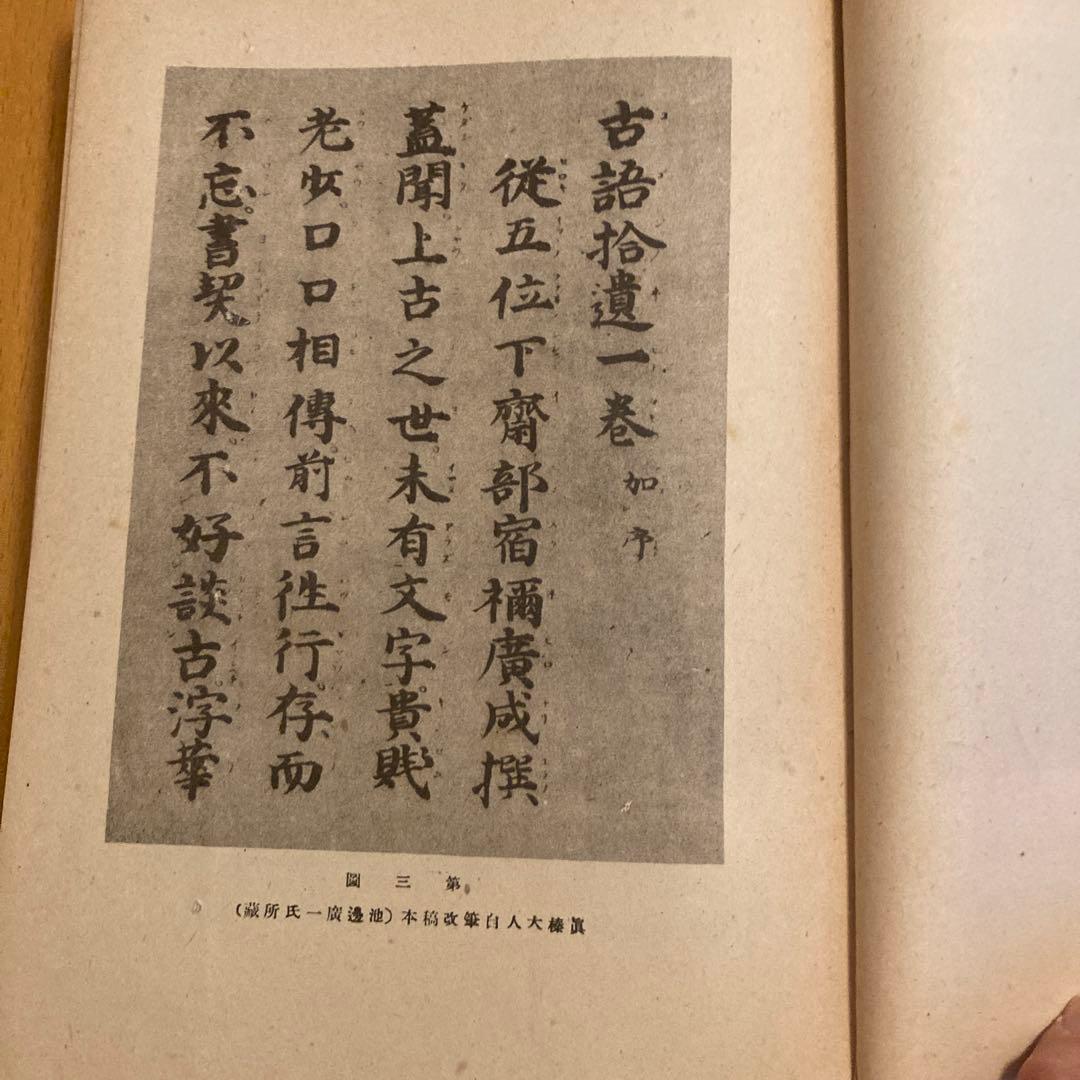 古語拾遺一巻 加序
従五位下齋部宿禰廣成撰
蓋聞上古之世未有文字貴賎
老少口口相傳前言徃行存而
不忘書契以來不好談古浮華
第三圖
眞榛大人自筆改稿本(池邊廣一氏所藏)